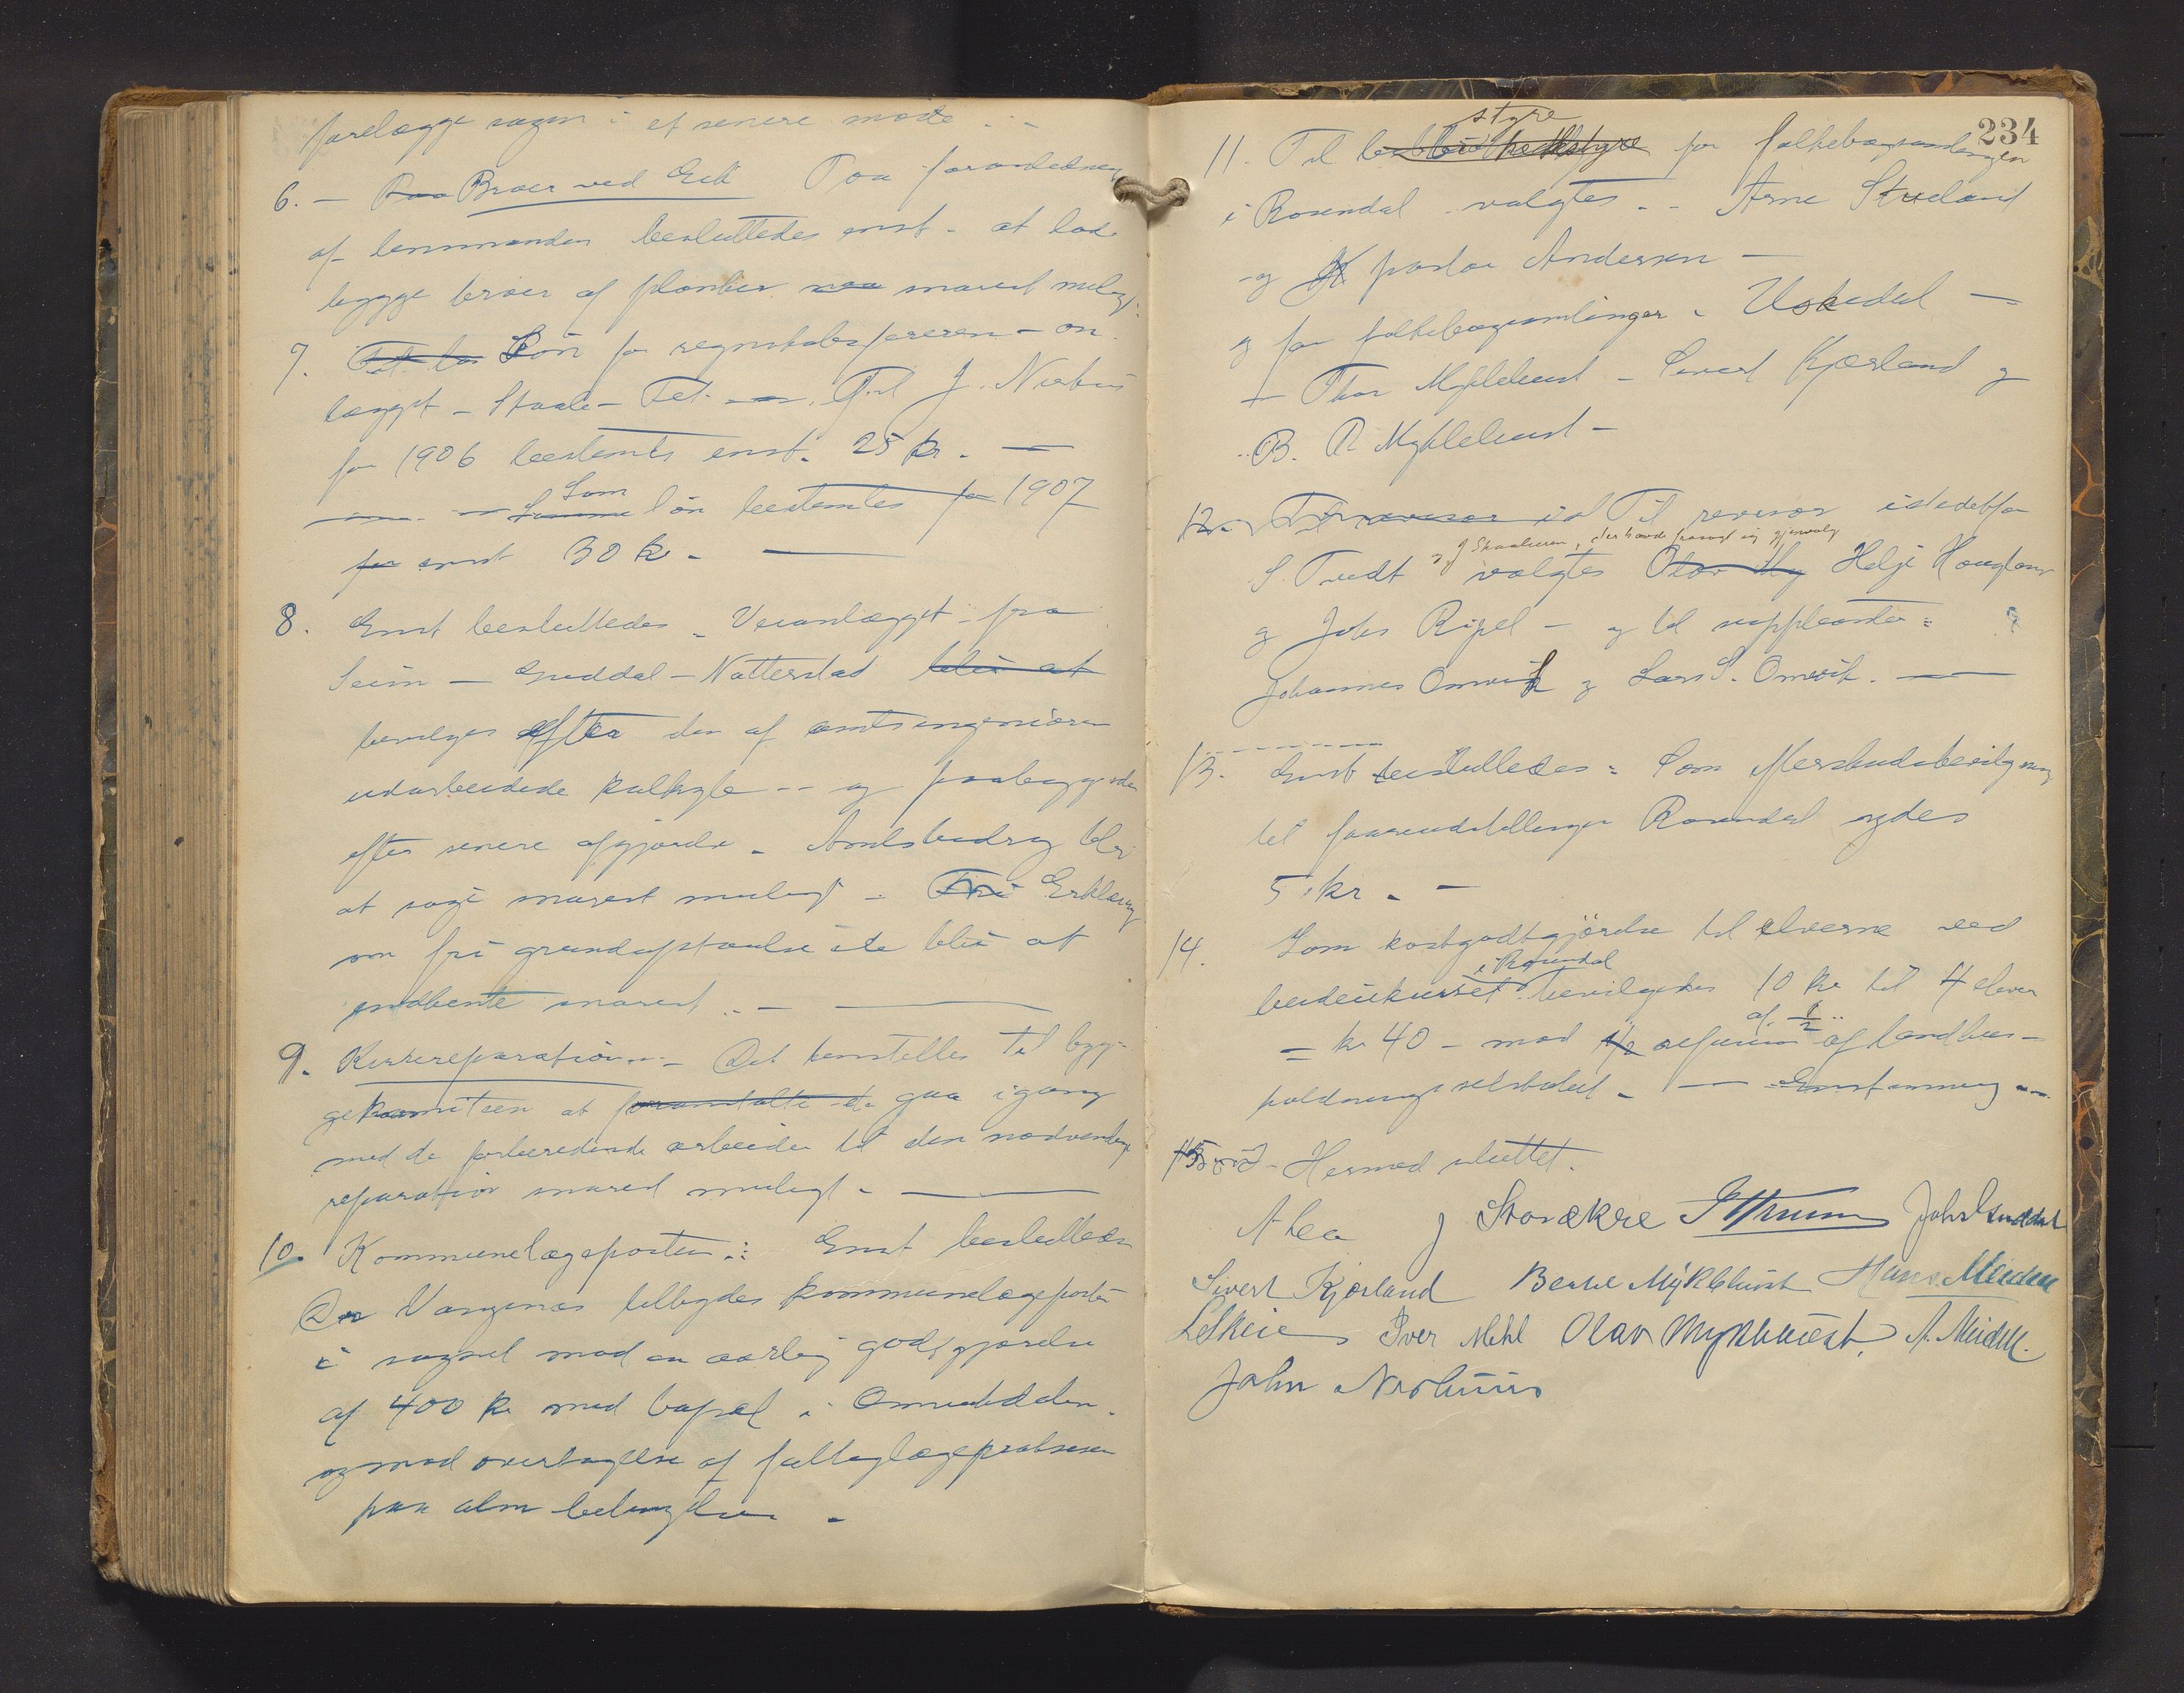 forelægge sagen i et senere møde . -
6. - Paa Broer ved Eik Paa foranledning
af lensmanden besluttedes enst. at lade
bygge broer af planker naa snarest muligt.
7. Til løn Løn for regnskabsføreren - an-
lægget - Staale - Fet. Til J. Nerhus
for 1906 bestemtes enst. 25 kr. -
Samme Som løn bestemtes for 1907
for enst 30 kr. -
8. Enst besluttedes - Veianlægget fra
Seim - Guddal - Natterstad blir at
bevilges efter den af amtsingeniøren
udarbeidede kalkyle - - og paabegyndes
efter senere afgjørelse. Amtsbidrag blir
at søge snarest muligt - Fri Erklæring
om fri grundafstaaelse ete blir at
indhente snarest . -
9. Kirkereparation. - Det henstilles til byg-
gekomiteen at foranstalte de gaa igang
med de forberedende arbeider til den nødvendige
reparation snarest muligt. -
10. Kommunelægeposten.: Enst besluttedes
Dr Vangsnes tilbydes kommunelægeposten
i sognet mod en aarlig godtgjørelse
af 400 kr med bopæl i Omvikdalen.
og mod overtagelse af fattiglægepraksisen
paa alm betingelser -
234
11. Til bibliothekstyre styre for folkebogsamlingen
i Rosendal valgtes. - Arne Skeeland
og K pastor Andersen -
og for folkebogsamlingen i Uskedal -
- Thor Myklebust - Sivert Kjærland og
B. R. Myklebust -
12. Til revisor is Til revisor istedetfor
S. Tvedt og J Skaaluren, der havde frasagt sig gjenvalg valgtes Olav My Helje Haugland
og Johs Ripel - og til suppleanter:
Johannes Omvik og Lars S. Omvik. -
13. Enst besluttedes: Som Merskudsbevilgning
til faareudstillingen Rosendal ydes
5 kr. -
14. Som kostgodtgjørelse til elverne ved
beitekurset i Rosendal bevilgedes 10 kr til 4 elever
= kr 40 - mod 1/2 refusion af 1/2 af landhus-
holdningsselskabet. - Enstemmig -
15 Hermed sluttet.
A Lea J Storækre Johs Guddal
Sivert Kjærland Berte Myklebust Hans Meidell
L Skeie Iver Mehl Olav Myklebust. A. Meidell.
John Nerhuus